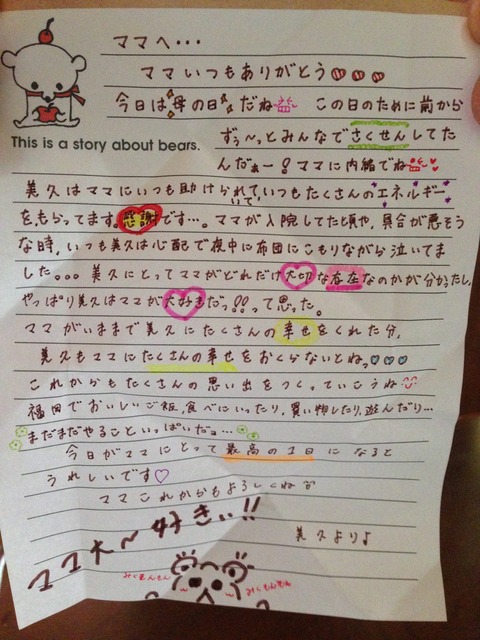 ママへ・・・
ママいつもありがとう♡♡♡
今日は母の日だね この日のために前から
This is a story about bears.
ずぅ〜っとみんなでさくせんしてた
んだぁー!ママに内緒でね
美久はママにいつも助けられていて、いつもたくさんのエネルギー
をもらってます。感謝です…。ママが入院してた頃や、具合が悪そう
な時、いつも美久は心配で夜中に布団にこもりながら泣いてま
した。。。美久にとってママがどれだけ大切な存在なのかが分かったし、
やっぱり美久はママが大好きだっ!!って思った。
ママがいままで美久にたくさんの幸せをくれた分、
美久もママにたくさんの幸せをおくらないとねっ♡♡♡
これからもたくさんの思い出をつくっていこうね
福田でおいしいご飯、食べにいったり、買い物したり、遊んだり…
まだまだやることいっぱいだョ…
今日がママにとって最高の1日になると
うれしいです♡
ママこれからもよろしくね
ママ大〜好きぃ!!
美久より♪